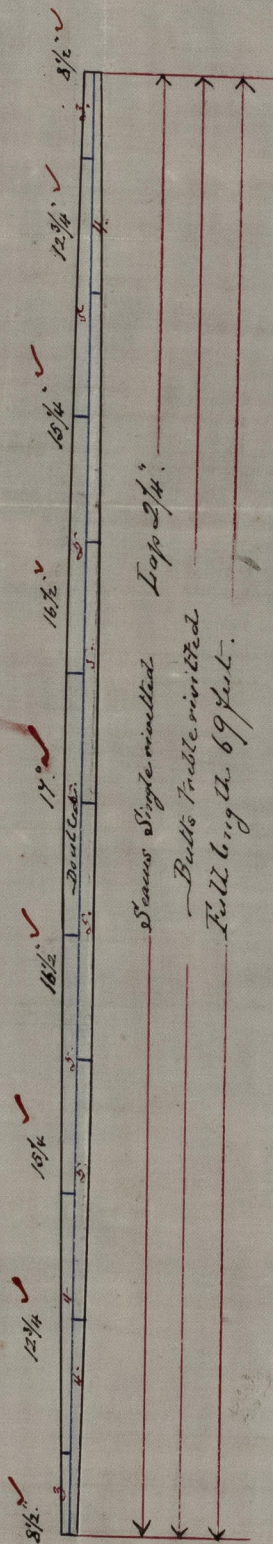 8½" 12¾" 15¼" 16½" 17" 16½" 15¼" 12¾" 8½"
3 4 5 Doubled 5 5 3
4 5 5 5 4
Seams Single rivetted Lap 2¼"
Butts Treble rivitted
Full length 69 feet.